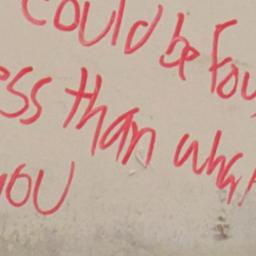 could be fou
ess than wha
you